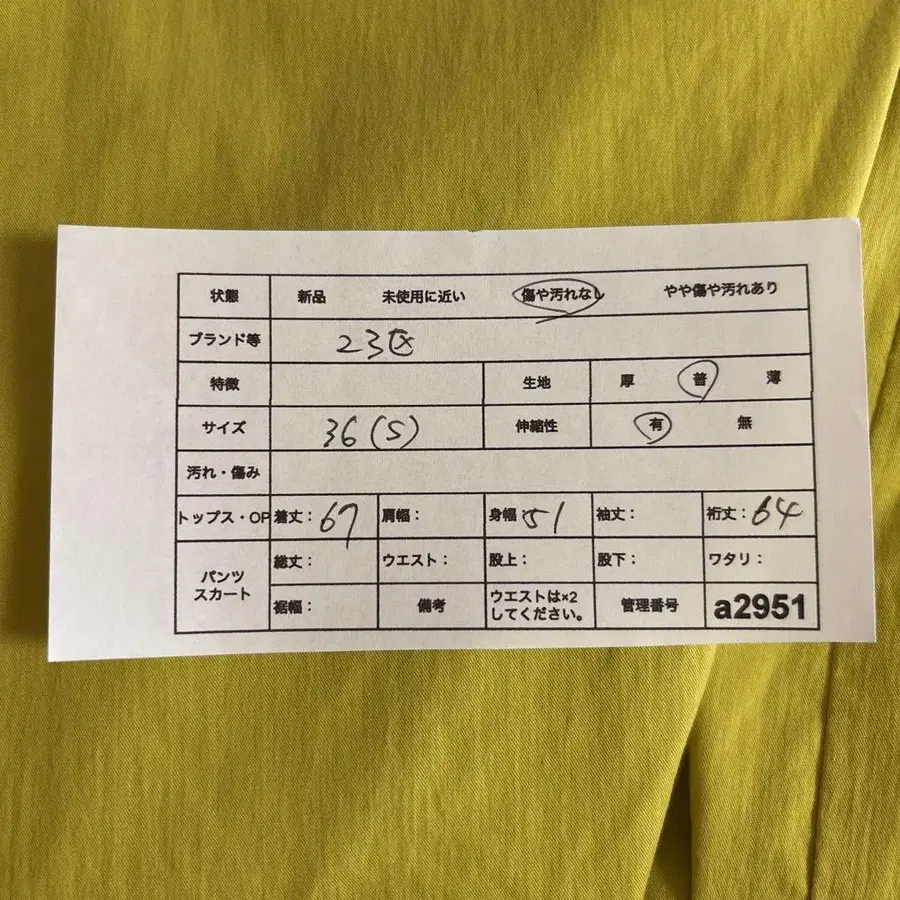 状態 新品 未使用に近い 傷や汚れなし やや傷や汚れあり
ブランド等 23区
特徴 生地 厚 普 薄
サイズ 36(S) 伸縮性 有 無
汚れ・傷み
トップス・OP 着丈:67 肩幅: 身幅 51 袖丈: 裄丈:64
パンツ スカート 総丈: ウエスト: 股上: 股下: ワタリ:
裾幅: 備考 ウエストは×2 してください。 管理番号 a2951